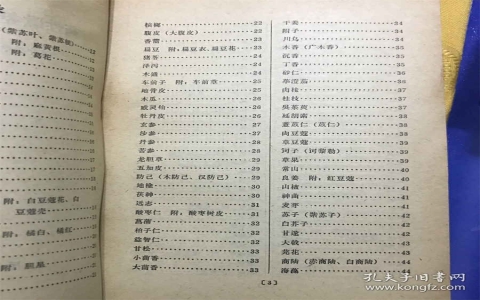 （紫苏叶、紫苏梗）
附：麻黄根
附：葛花
附：白豆蔻花、白
豆蔻壳
附：橘白、橘红
槟榔……22
腹皮（大腹皮）……22
香薷……23
扁豆 附：扁豆衣、扁豆花……23
猪苓……24
泽泻……24
木通……24
车前子 附：车前草……24
地骨皮……25
木瓜……25
威灵仙……26
牡丹皮……26
玄参……26
沙参……27
丹参……27
苦参……28
龙胆草……29
五加皮……29
防己（木防己、汉防己）……29
地榆……30
茯神……30
远志……31
酸枣仁 附：酸枣树皮……31
菖蒲……31
柏子仁……32
益智仁……32
甘松……33
小茴香……33
大茴香……33
干姜……34
川乌……35
木香（广木香）……35
沉香……35
丁香……36
砂仁……36
荜澄茄……36
肉桂……37
桂枝……37
吴茱萸……37
延胡索……38
薏苡仁（苡仁）……38
肉豆蔻……38
草豆蔻……39
诃子（诃黎勒）……39
草果……39
常山……40
良姜 附：红豆蔻……40
山楂……40
神曲……41
麦芽……41
苏子（紫苏子）……42
白芥子……42
甘遂……42
大戟……43
芫花……43
商陆（赤商陆、白商陆）……44
海藻……44
（3）
孔夫子旧书网